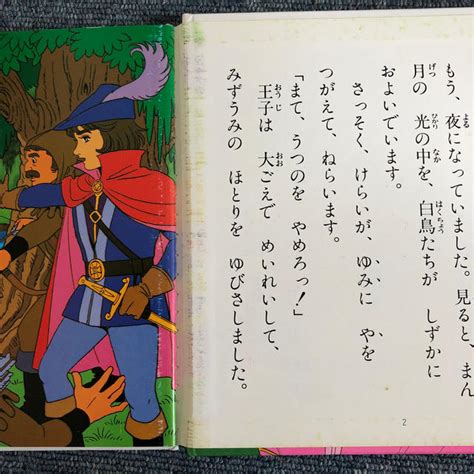 もう、夜になっていました。見ると、まん
月の 光の中を、白鳥たちが しずかに
およいでいます。
さっそく、けらいが、ゆみに やを
つがえて、ねらいます。
「まて、うつのを やめろっ！」
王子は 大ごえで めいれいして、
みずうみの ほとりを ゆびさしました。
2